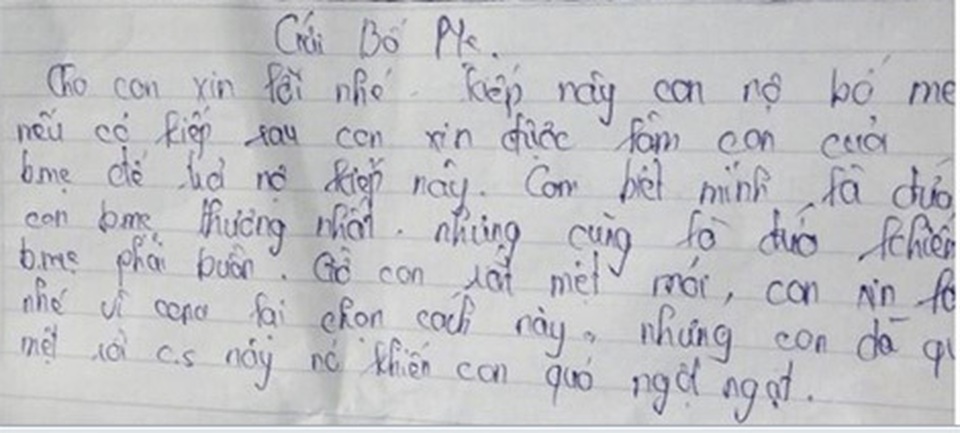 Gửi Bố Mẹ.
Cho con xin lỗi nhé. kiếp này con nợ bố mẹ
nếu có kiếp sau con xin được làm con của
bmẹ để trả nợ kiếp này. Con biết mình là đứa
con bmẹ thương nhất. nhưng cũng là đứa khiến
b.mẹ phải buồn. Giờ con rất mệt mỏi, con xin lỗ
nhé vì con lại chọn cách này, nhưng con đã qu
mệt rồi c.s này nó khiến con quá ngột ngạt.